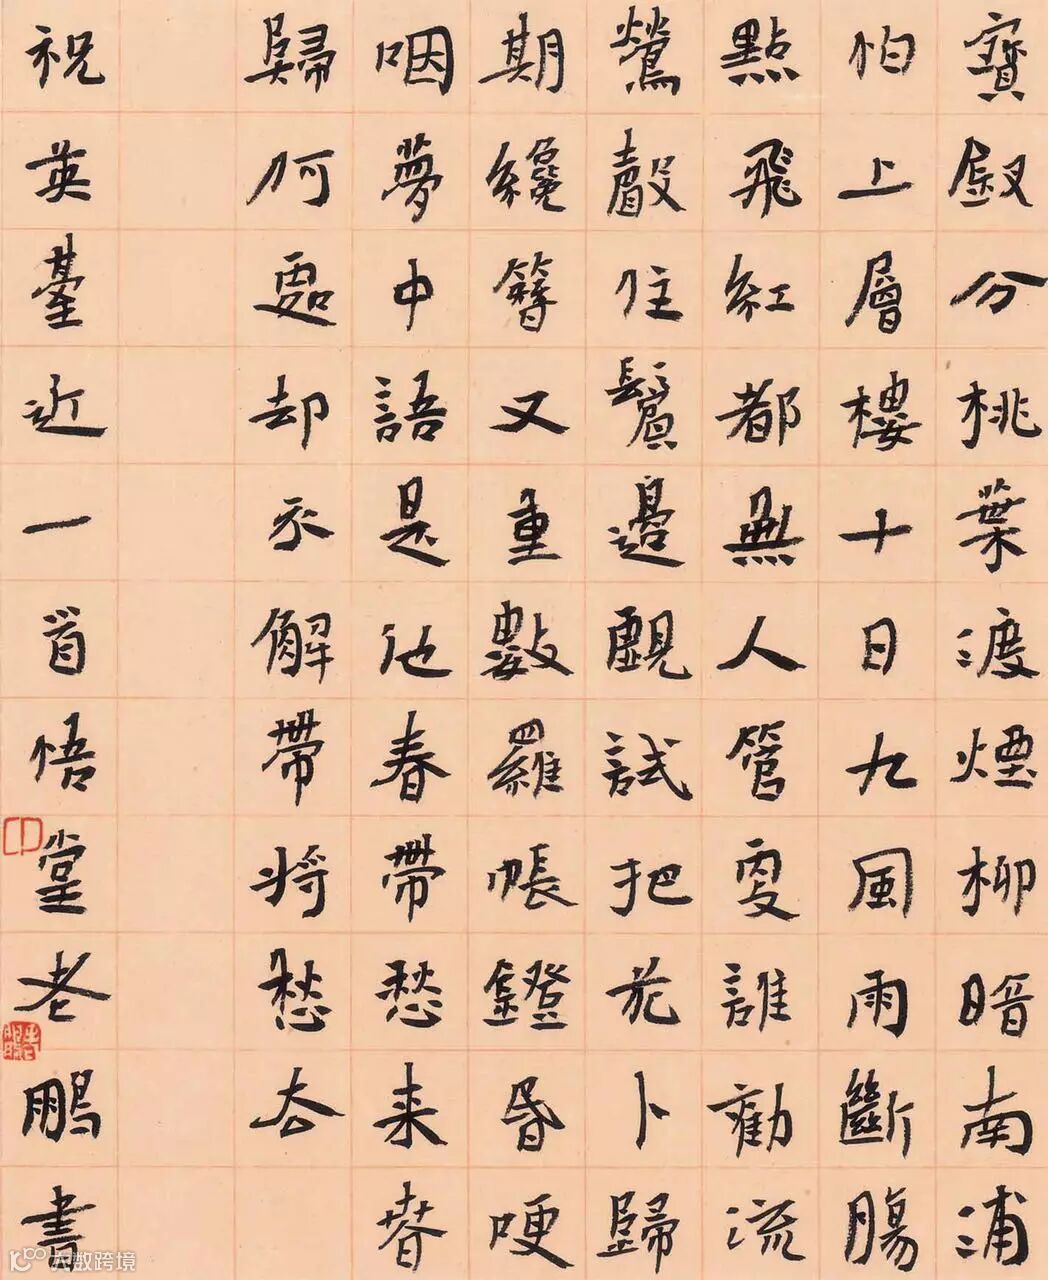 寶釵分桃葉渡煙柳暗南浦
怕上層樓十日九風雨斷腸
點飛紅都無人管更誰勸流
鶯聲住鬢邊覷試把花卜歸
期纔簪又重數羅帳鐙昏哽
咽夢中語是他春帶愁来春
歸何處却不解帶將愁去
祝英臺近一首悟堂老鵬書
大数跨境